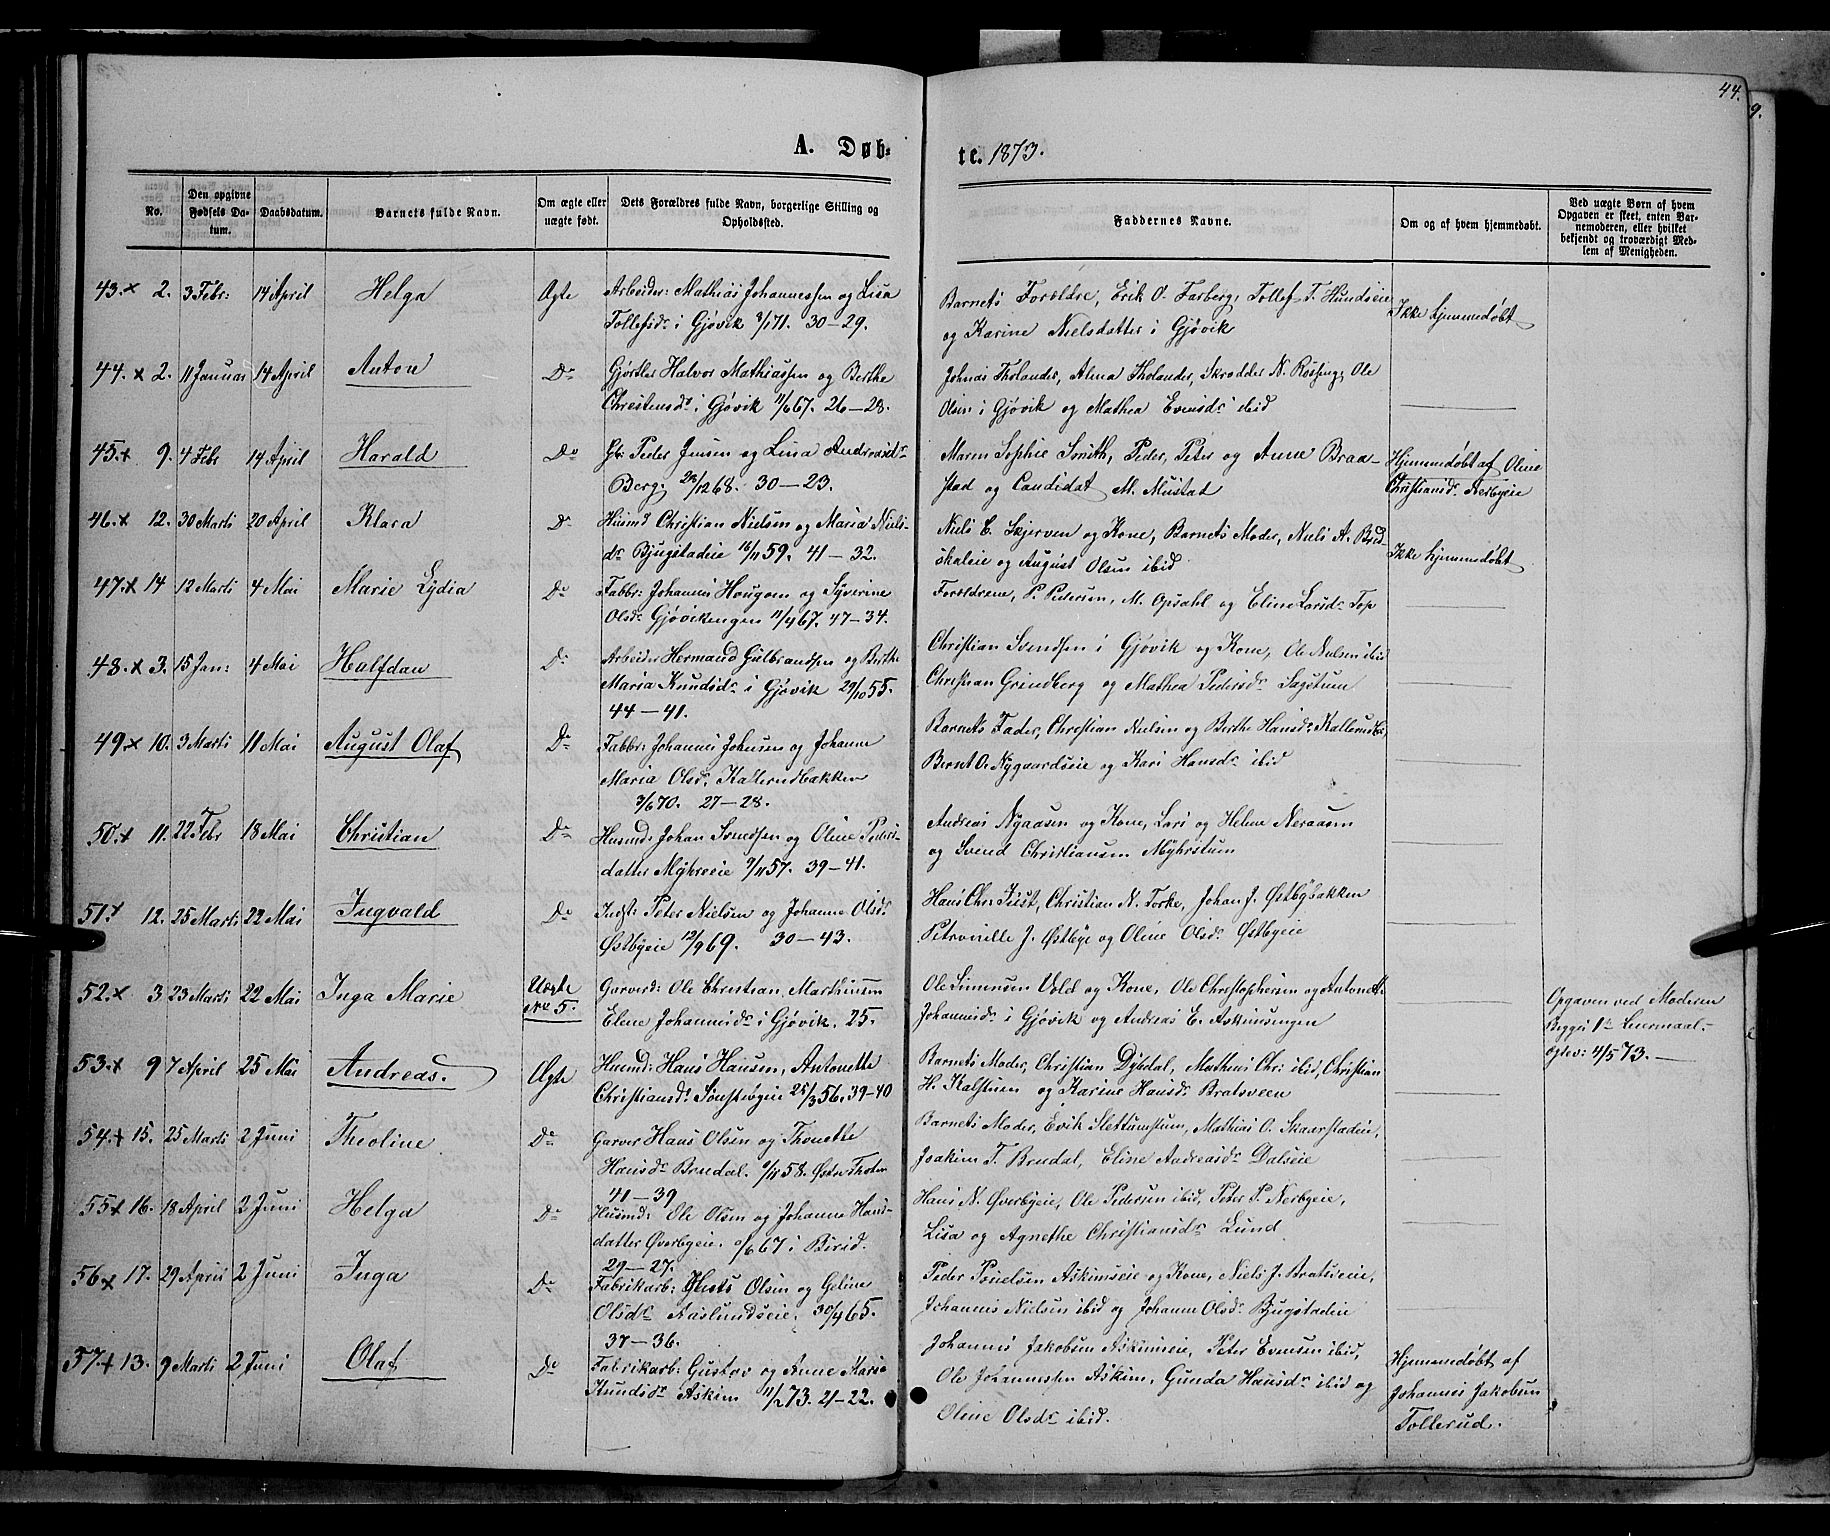 44.
9.
A. Døb-
te. 1873.
No.
Den opgivne Fødsels Da-
tum.
Daabsdatum.
Barnets fulde Navn.
Om ægte eller
uægte født.
Dets Forældres fulde Navn, borgerlige Stilling og
Opholdssted.
Faddernes Navne.
Om og af hvem hjemmedøbt.
Ved uægte Børn af hvem
Opgaven er skeet, enten Bar-
nemoderen, eller hvilket
bekjendt og troværdigt Med-
lem af Menigheden.
43. x 2. 3 Febr: 14 April Helga Ægte Arbeider: Mathias Johannessen og Lisa
Tollefsdr i Gjøvik 3/1 71. 30-29.
Barnets Forældre, Erik O. Farberg, Tollef T. Hundseie
og Karine Nielsdatter i Gjøvik
Ikke hjemmedøbt
44. x 2. 11 Januar 14 April Anton Do Gjørtler Halvor Mathiassen og Berthe
Christensdr i Gjøvik 11/6 67. 26-28.
Johnas Tholander, Alma Tholander, Skrædder N. Rossing, Ole
Olsen i Gjøvik og Mathea Evensdr ibid
45. + 9. 4 Febr 14 April Harald Do Gb: Peder Jensen og Lina Andreasdr
Berg. 29/12 68. 30-23.
Maren Sophie Smith, Peder, Peter og Anne Braa-
stad og Candidat M. Mustad
Hjemmedøbt af Oline
Christiansdr Nerbyeie
46. x 12. 30 Marts 20 April Klara Do Husmd Christian Nielsen og Maria Niels-
dr Bjugstadeie 16/11 59. 41-32.
Niels C. Skjerven og Kone, Barnets Moder, Niels A. Bred-
skaleie og August Olsen ibid
Ikke hjemmedøbt
47. x 14 12 Marts 4 Mai Marie Lydia Do Fabbr: Johannes Hougom og Syverine
Olsdr Gjøvikengen 11/4 67. 47-34.
Forældrene, P. Pedersen, M. Opsahl og Eline Larsdr Top
48. x 3. 15 Jan: 4 Mai Halfdan Do Arbeider Hermand Gulbrandsen og Berthe
Maria Knudsdr i Gjøvik 29/10 55.
44-41.
Christian Svendsen i Gjøvik og Kone, Ole Nielsen ibid
Christian Grindberg og Mathea Pedersdr Sagstum
49. x 10. 3 Marts 11 Mai August Olaf Do Fabbr: Johannes Johnsen og Johanne
Maria Olsdr Kallerudbakken
3/6 70. 27-28.
Barnets Fader, Christian Nielsen og Berthe Hansdr Kallerudb:,
Bernt O. Nygaardseie og Kari Hansdr ibid
50. + 11. 22 Febr 18 Mai Christian Do Husmd: Johan Svendsen og Oline Peders-
datter Myhreeie 9/11 57. 39-41.
Andreas Nyaasen og Kone, Lars og Helene Neraasen
og Svend Christiansen Myhrstuen
51. + 12. 25 Marts 22 Mai Ingvald Do Indst: Peter Nielsen og Johanne Olsdr
Østbyeie 12/9 69. 30-43.
Hans Chr: Just, Christian N. Torke, Johan J. Østbybakken
Petronille J. Østbye og Oline Olsdr Østbyeie
52. x 3 23 Marts 22 Mai Inga Marie Uægte
No 5. Garversd: Ole Christian Marthinsen
Eline Johannesdr i Gjøvik. 25.
Ole Simensen Vold og Kone, Ole Christophersen og Antonette
Johannesdr i Gjøvik og Andreas E. Askimsengen
Opgaven ved Moderen
Begges 1ste Leiermaal.
oplev: 4/5 73.
53. + 9 7 April 25 Mai Andreas. Ægte Husmd: Hans Hansen, Antonette
Christiansdr Sønstebyeie 25/3 56. 39-40
Barnets Moder, Christian Dybdal, Mathias Chr: ibid, Christian
H. Kalstuen og Karine Hansdr Bratsveen
54. + 15. 25 Marts 2 Juni Theoline Do Garver Hans Olsen og Thonette
Hansdr Brudal. 9/11 58. Østre Thoten
41-39
Barnets Moder, Erik Slettumstum, Mathias O. Skaarstadeie,
Joakim T. Brudal, Eline Andreasdr Dalseie
55 + 16. 18 April 2 Juni Helga Do Husmd: Ole Olsen og Johanne Hans-
datter Øverbyeie. 9/6 67 i Birid.
29-27.
Hans N. Øverbyeie, Ole Pedersen ibid, Peter P. Nerbyeie,
Lisa og Agnethe Christiansdr Lund
56 x 17. 29 April 2 Juni Inga Do Fabrikarb: Olsen og Geline
Olsdr Aaslundseie. 30/4 65.
37-36.
Peder Poulsen Askimseie og Kone, Niels J. Bratsveie,
Johannes Nielsen ibid og Johanne Olsdr Bjugstadeie
57. + 13. 9 Marts 2 Juni Olaf Do Fabrikarb: Gustav og Anne Marie
Knudsdr Askim 11/2 73. 21-22.
Johannes Jakobsen Askimeie, Peter Evensen ibid,
Ole Johannessen Askim, Gunda Hansdr ibid og
Oline Olsdr ibid.
Hjemmedøbt af
Johannes Jakobsen
Tollerud.